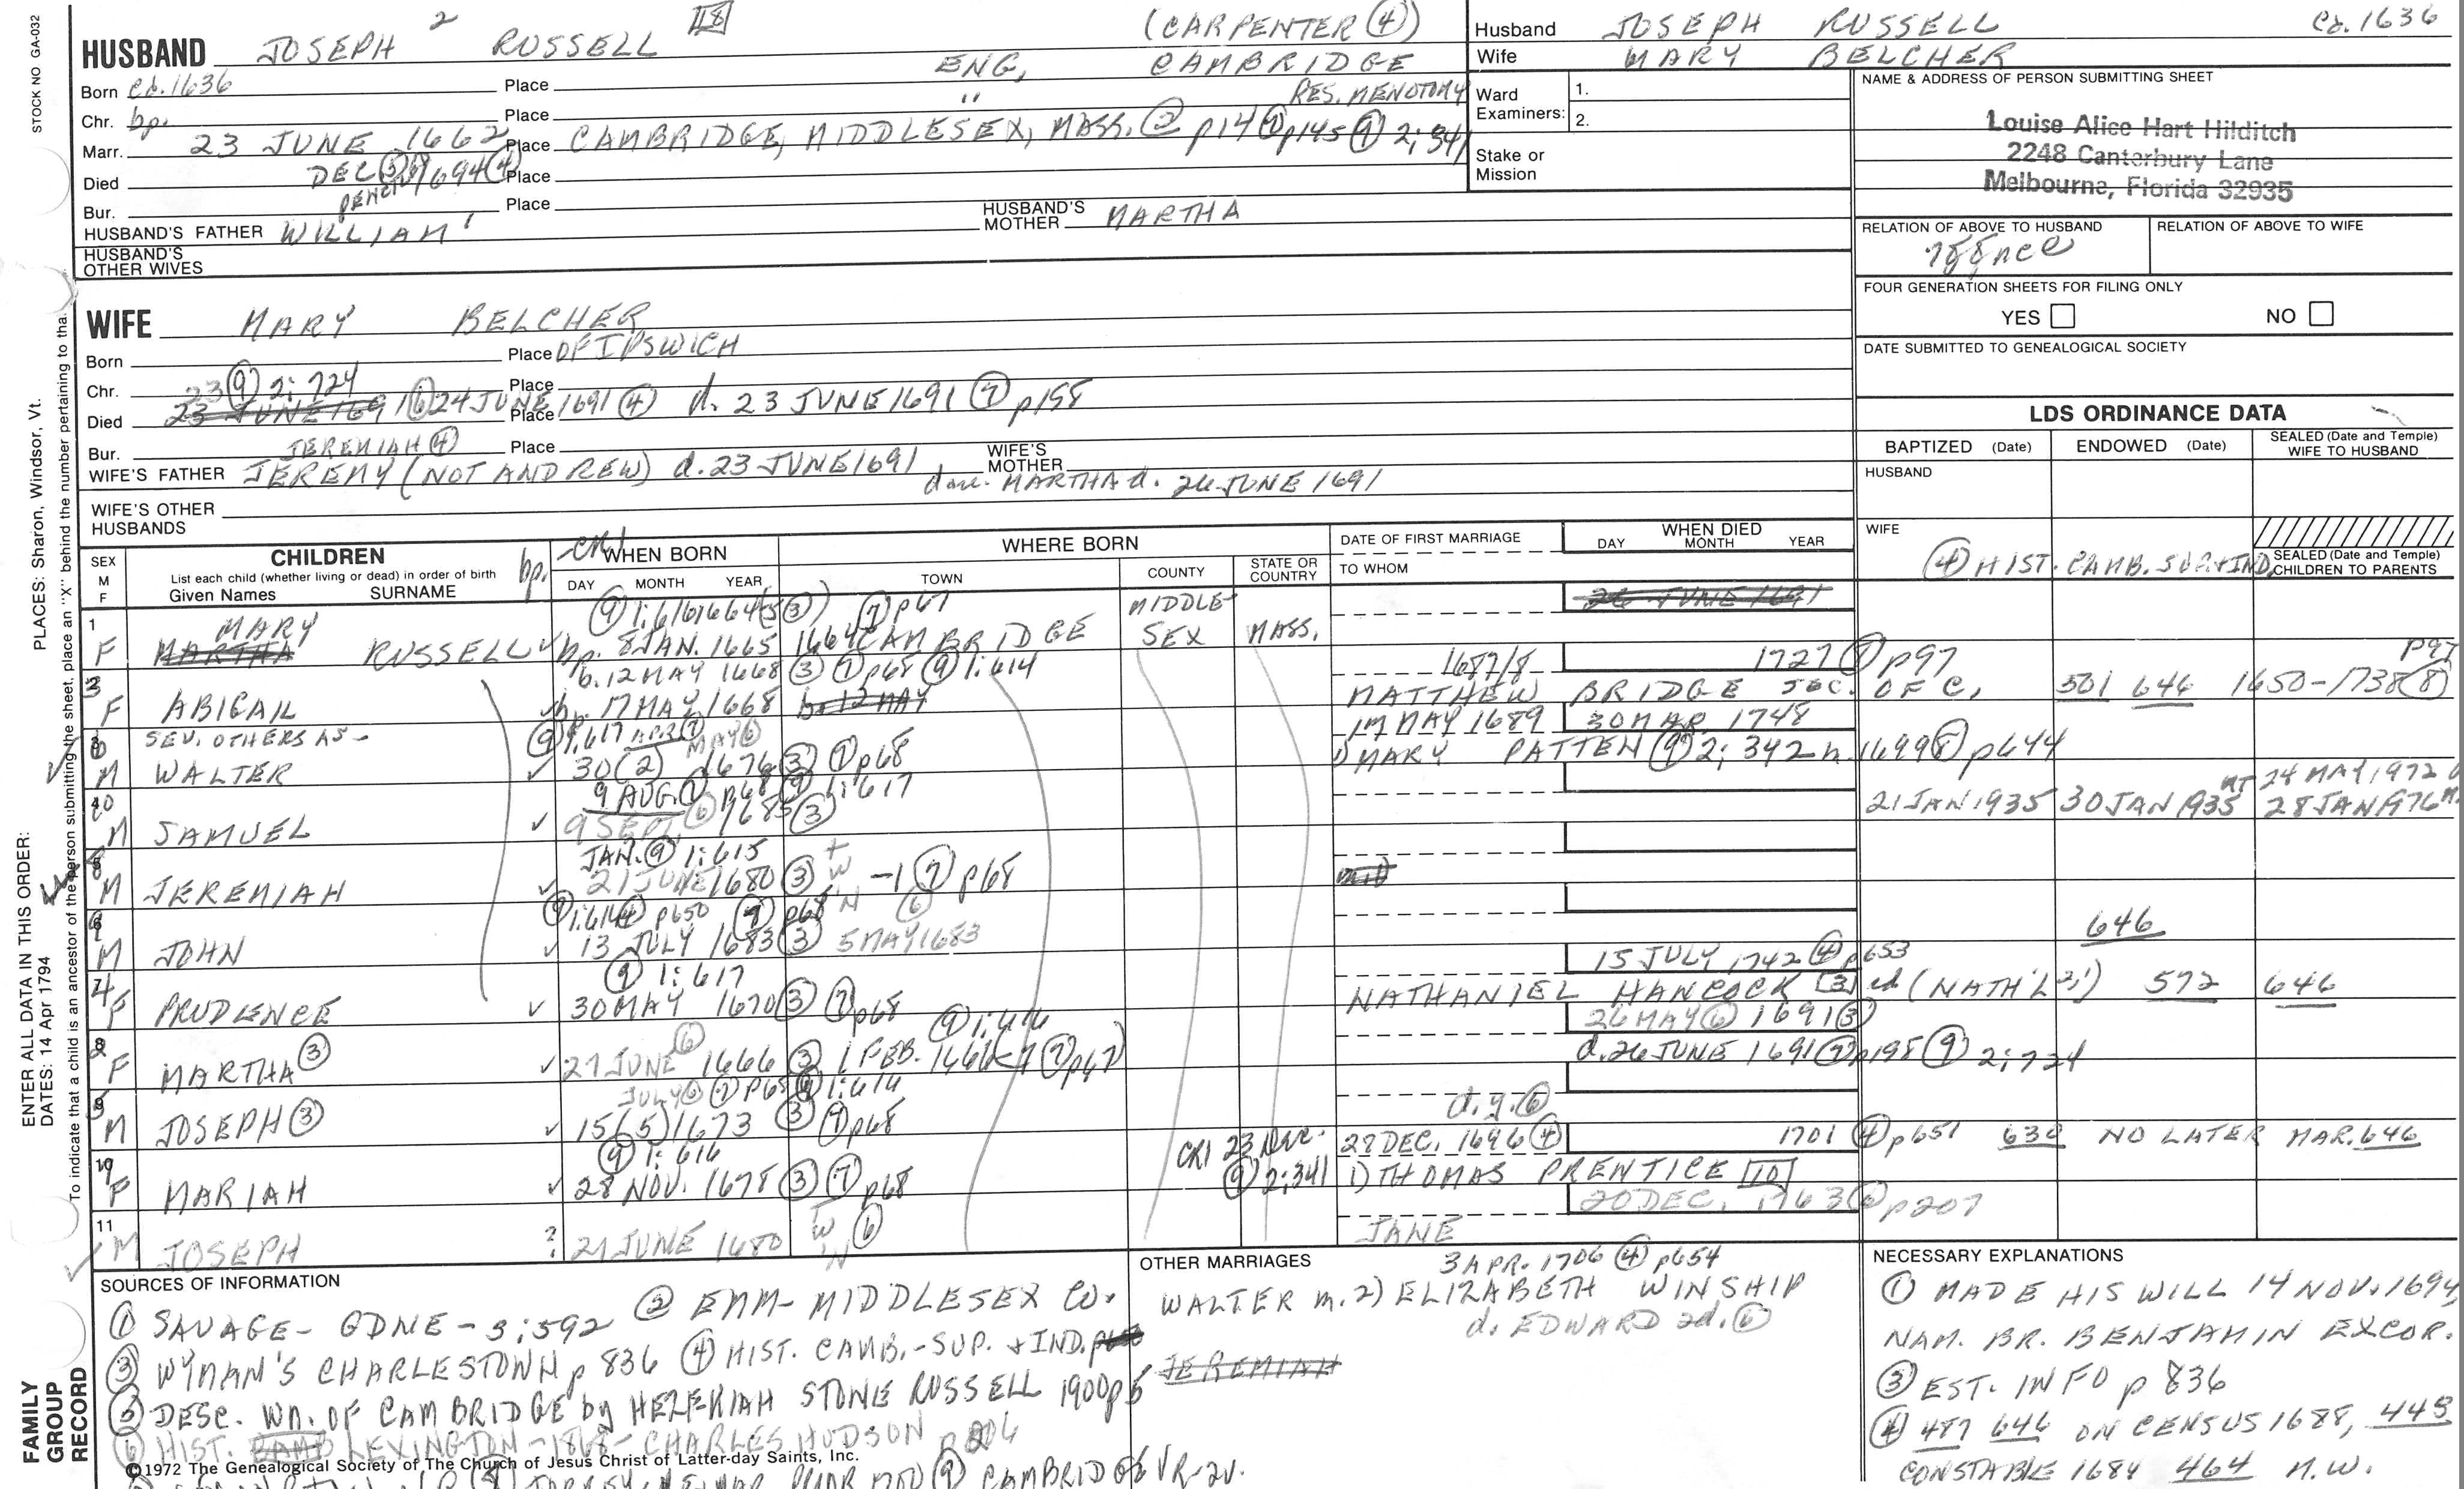 STOCK NO GA-032
HUSBAND JOSEPH 2 RUSSELL 118 (CARPENTER (4))
Born Cd. 1636 Place ENG, CAMBRIDGE
Chr. bp. Place " RES. MENOTOMY
Marr. 23 JUNE 1662 Place CAMBRIDGE, MIDDLESEX, MASS. (2) p14 (7) p145 (9) 2:341
Died DEC (5) 1694 (4) Place
PENCIL
Bur. Place
HUSBAND'S FATHER WILLIAM 1 HUSBAND'S MOTHER MARTHA
HUSBAND'S OTHER WIVES
WIFE MARY BELCHER
Born Place OF IPSWICH
Chr. 23 (9) 2:724 Place
Died 23 JUNE 1691 (6) 24 JUNE 1691 (4) d. 23 JUNE 1691 (7) p198 Place
Bur. JEREMIAH (4) Place
WIFE'S FATHER JEREMY (NOT ANDREW) d. 23 JUNE 1691 WIFE'S MOTHER
dau. MARTHA d. 26 JUNE 1691
WIFE'S OTHER HUSBANDS
Husband JOSEPH RUSSELL Cd. 1636
Wife MARY BELCHER
Ward Examiners: 1.
2.
Stake or Mission
NAME & ADDRESS OF PERSON SUBMITTING SHEET
Louise Alice Hart Hilditch
2248 Canterbury Lane
Melbourne, Florida 32935
RELATION OF ABOVE TO HUSBAND RELATION OF ABOVE TO WIFE
FOUR GENERATION SHEETS FOR FILING ONLY
YES NO
DATE SUBMITTED TO GENEALOGICAL SOCIETY
LDS ORDINANCE DATA
BAPTIZED (Date) ENDOWED (Date) SEALED (Date and Temple) WIFE TO HUSBAND
HUSBAND
WIFE
(4) HIST. CAMB. SUP + IND. SEALED (Date and Temple) CHILDREN TO PARENTS
SEX M F
CHILDREN
List each child (whether living or dead) in order of birth
Given Names SURNAME
bp. - CR1 WHEN BORN
DAY MONTH YEAR
WHERE BORN
TOWN COUNTY STATE OR COUNTRY
DATE OF FIRST MARRIAGE
TO WHOM
WHEN DIED
DAY MONTH YEAR
(7) p67 MIDDLE- 26 JUNE 1691
1 F MARY MARTHA RUSSELL bp. 8 JAN. 1665 1664 CAMBRIDGE SEX MASS.
b. 12 MAY 1668 (3) (7) p68 (9) 1:614 1687/8 1727 (7) p97 p97
F ABIGAIL bp. 17 MAY 1668 b. 12 MAY MATTHEW BRIDGE SEC. OF C. 501 646 1650-1738 (8)
SEV. OTHERS AS - (9) 1:617 APR (7) MAY (6) 17 MAY 1689 30 MAR. 1748
M WALTER 30 (2) 1676 (3) (7) p68 1) MARY PATTEN (9) 2:342 n. 1699 (8) p644
9 AUG. (7) p68 (9) 1:617
M SAMUEL 9 SEPT. (6) 1685 (3) 21 JAN 1935 30 JAN 1935 24 MAY 1972 28 JAN 1976
JAN. (9) 1:615
M JEREMIAH 21 JUNE 1680 (3) TWIN -1 (7) p68
(9) 1:616 (4) p650 (7) p68 (6)
M JOHN 13 JULY 1683 (3) 5 MAY 1683 646
(9) 1:617 15 JULY 1742 (4) p653
F PRUDENCE 30 MAY 1670 (3) (7) p68 NATHANIEL HANCOCK [3] ed (NATH'L 2,1) 572 646
(9) 1:616 26 MAY (6) 1691 (3)
F MARTHA (3) 27 JUNE (6) 1666 (3) 1 FEB. 1666-7 (7) p67 d. 26 JUNE 1691 (7) p198 (9) 2:724
JULY (6) (7) p68 (9) 1:616
M JOSEPH (3) 15 (5) 1673 (3) (7) p68 d.y. (6)
(9) 1:616 CR1 23 Dec. 28 DEC. 1696 (4) 1701 (4) p651 630 NO LATER MAR. 646
10 F MARIAH 28 NOV. 1678 (3) (7) p68 (9) 2:341 1) THOMAS PRENTICE 10
20 DEC. 1763 (6) p207
11 M JOSEPH ? 21 JUNE 1680 TWIN (6) JANE
SOURCES OF INFORMATION
(1) SAVAGE - GDNE - 3:592 (2) EMM - MIDDLESEX CO.
(3) WYMAN'S CHARLESTOWN p 836 (4) HIST. CAMB. - SUP. + IND.
(5) DESC. WM. OF CAMBRIDGE by HEZEKIAH STONE RUSSELL 1900 p5
(6) HIST. LEXINGTON - 1868 - CHARLES HUDSON p 204
©1972 The Genealogical Society of The Church of Jesus Christ of Latter-day Saints, Inc.
PRIOR 1700 (9) CAMBRIDGE VR-2v.
OTHER MARRIAGES
3 APR. 1706 (4) p654
WALTER m. 2) ELIZABETH WINSHIP
d. EDWARD 2d. (6)
JEREMIAH
NECESSARY EXPLANATIONS
(1) MADE HIS WILL 14 NOV. 1694,
NAM. BR. BENJAMIN EXCOR.
(3) EST. INFO p 836
(4) 487 646 ON CENSUS 1688, 443
CONSTABLE 1684 464 N.W.
PLACES: Sharon, Windsor, Vt.
ENTER ALL DATA IN THIS ORDER:
DATES: 14 Apr 1794
To indicate that a child is an ancestor of the person submitting the sheet, place an "X" behind the number pertaining to tha
FAMILY GROUP RECORD